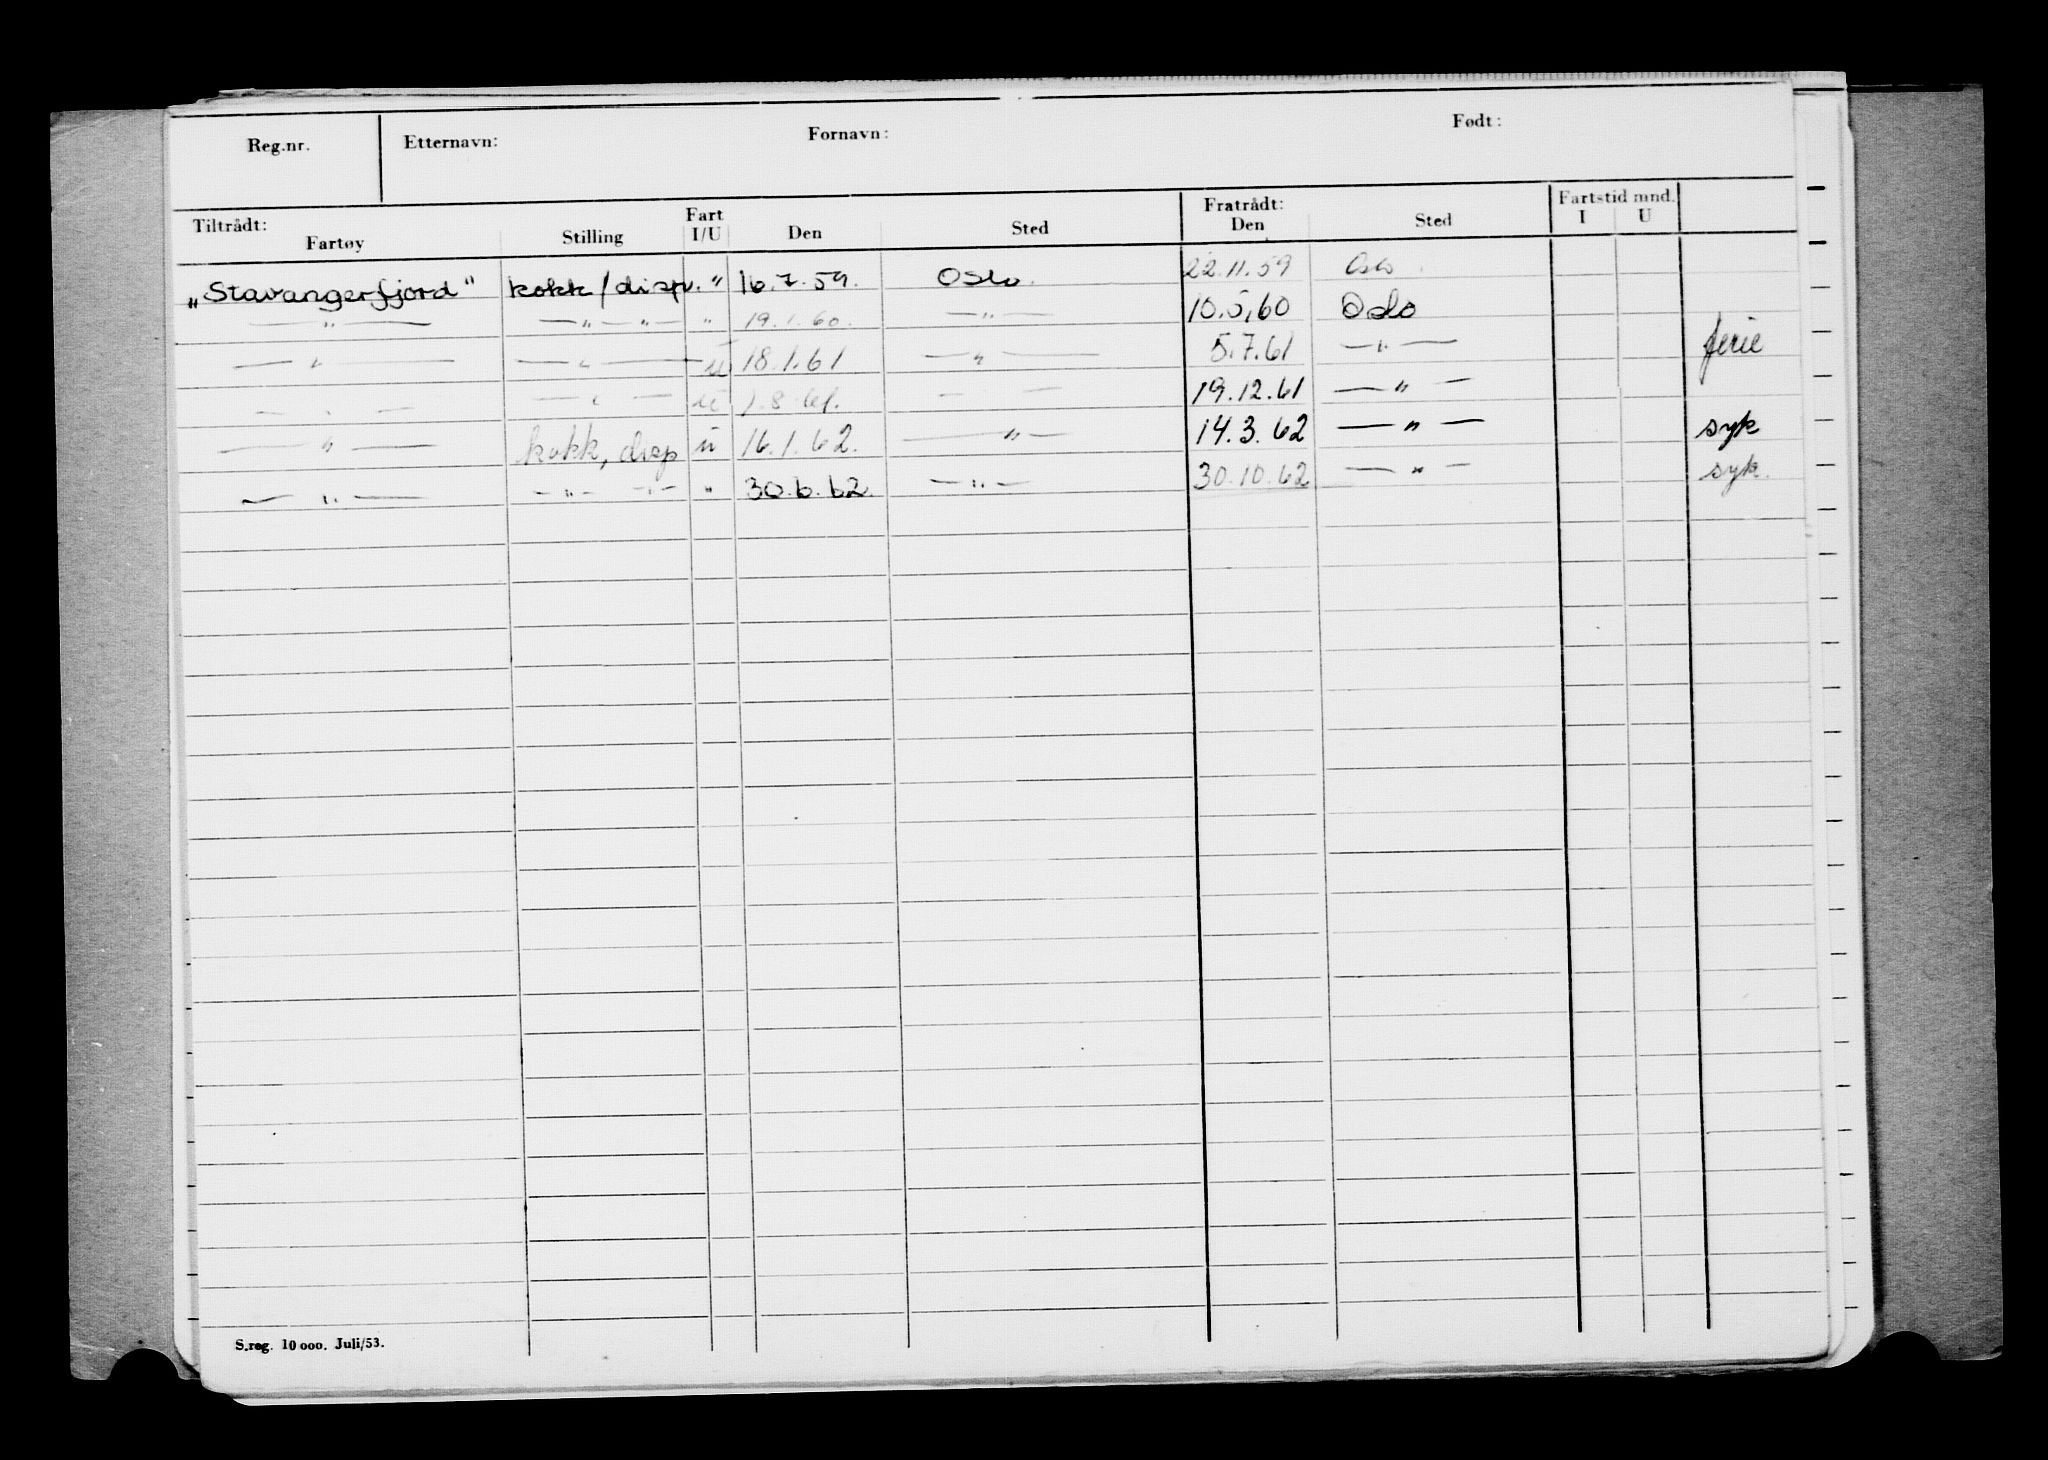 Reg.nr. Etternavn: Fornavn: Født:
Tiltrådt: Fartøy Stilling Fart I/U Den Sted Fratrådt: Den Sted Fartstid mnd. I U
„Stavangerfjord" kokk/disp. " 16.7.59. Oslo. 22.11.59 Oslo
—"— —"—"— " 19.1.60. —"— 10.5.60 Oslo
—"— —"— u 18.1.61 —"— 5.7.61 —"— ferie
—"— —"— u 1.8.61. — — 19.12.61 —"—
—"— kokk, disp u 16.1.62. —"— 14.3.62 —"— syk
—"— —"— —"— " 30.6.62. —"— 30.10.62 —"— syk.
S.reg. 10 000. Juli/53.